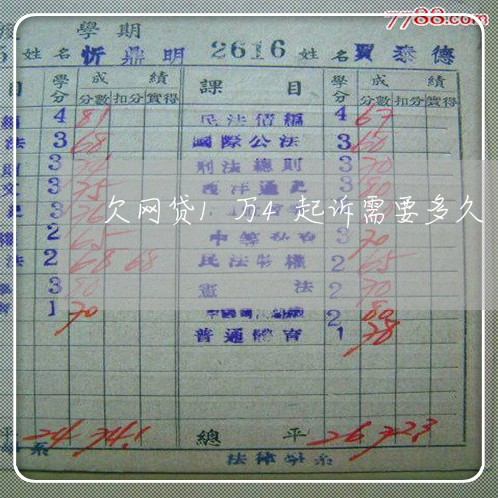 7788.com
學期
姓名 忻鼎明 2616 姓名 賈泰德
目 學分 成績 課目 學分 成績
分數 扣分 實得 分數 扣分 實得
4 81 民法債編 4 67
法 3 68 國際公法 3 60
3 刑法總則 3 70
文 3 75 西洋通史 3 80
欠网贷1万4起诉需要多久
權 2 65 3 70
法 2 68 68 民法物權 2 65
3 80 憲法 2 70
育 1 70 2 80
普通體育 1 78
平 24 74.1 總平 26 72.3
系 法律學系